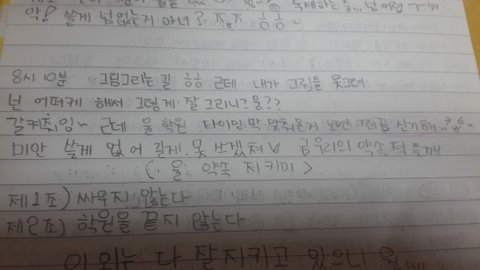 악! 쓸게 넘 없는지 아녀? ㅈㅈ ㅎㅎ~
8시 10분 그림그리는 길 ㅎㅎ 근데 내가 그림을 못그려
넌 어떠케 해서 그렇게 잘 그리니? 웅??
갈켜줘잉~ 근데 울 학원 타이밍 딱 맞춰온거 보면 신기해
미안 쓸게 없어 길게 못 쓰겠쪄 우리의 약속 적을께
< 울 약속 지키미 >
제1조) 싸우지 않는다
제2조) 학원을 끝지 않는다
이 외는 다 잘지키고 있으니